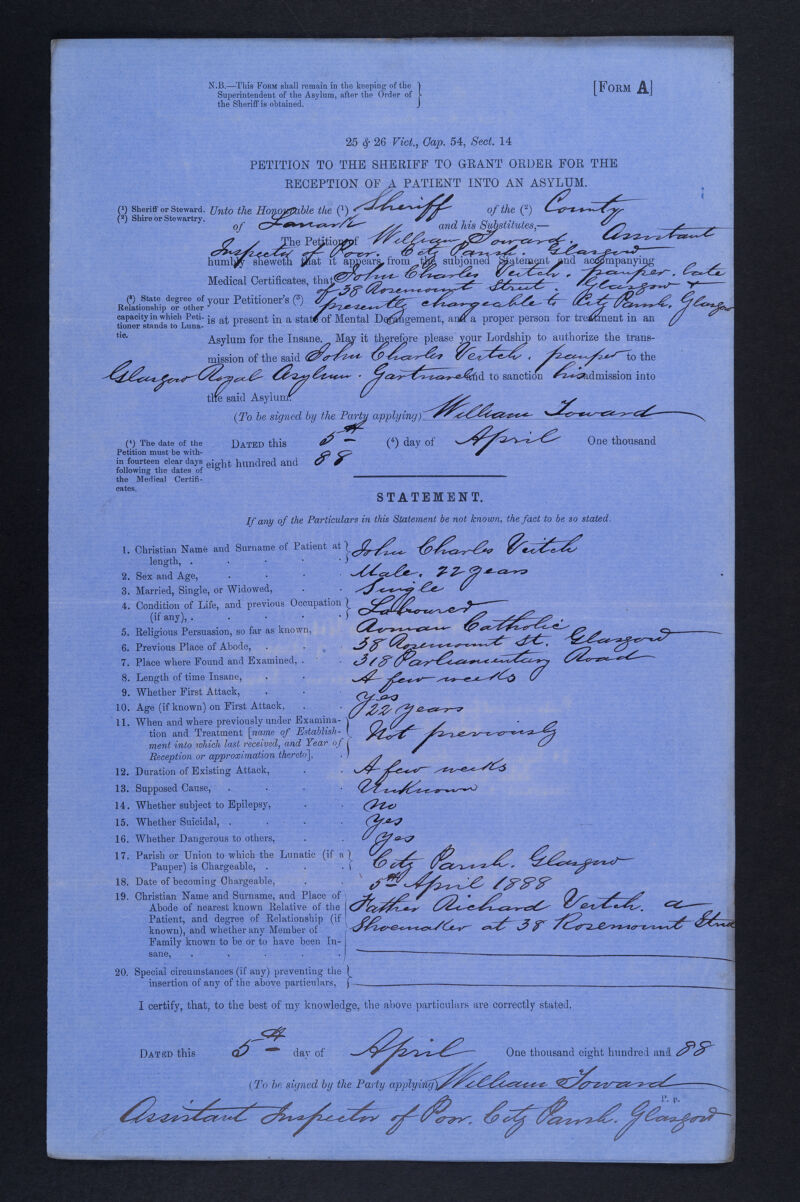 N.B.—This Form shall remain in the keeping of the
Superintendent of the Asylum, after the Order of
the Sheriff is obtained.
[Form A]
25 & 26 Vict., Cap. 54, Sect. 14
PETITION TO THE SHERIFF TO GRANT ORDER FOR THE
RECEPTION OF A PATIENT INTO AN ASYLUM.
(1) Sheriff or Steward.
(2) Shire or Stewartry.
Unto the Honourable the (1) Sheriff of the (2) County
of Lanark and his Substitutes,—
The Petition of William Toward, Assistant
Inspector of Poor. City Parish. Glasgow
humbly sheweth that it appears from the subjoined Statement and accompanying
Medical Certificates, that John Charles Veitch. pauper. late
of 38 Rosemount Street. Glasgow &
(3) State degree of
Relationship or other
capacity in which Peti-
tioner stands to Luna-
tic.
your Petitioner's (3) presently chargeable to City Parish. Glasgow
is at present in a state of Mental Derangement, and a proper person for treatment in an
Asylum for the Insane. May it therefore please your Lordship to authorize the trans-
mission of the said John Charles Veitch. pauper to the
Glasgow Royal Asylum. Gartnavel and to sanction his admission into
the said Asylum.
(To be signed by the Party applying) William Toward
(4) The date of the
Petition must be with-
in fourteen clear days
following the dates of
the Medical Certifi-
cates.
Dated this 5th (4) day of April One thousand
eight hundred and 88
STATEMENT.
If any of the Particulars in this Statement be not known, the fact to be so stated.
1. Christian Name and Surname of Patient at
length, . John Charles Veitch
2. Sex and Age, Male. 22 years
3. Married, Single, or Widowed, Single
4. Condition of Life, and previous Occupation
(if any), . Labourer
5. Religious Persuasion, so far as known, Roman Catholic
6. Previous Place of Abode, 38 Rosemount St. Glasgow
7. Place where Found and Examined, . 318 Parliamentary Road
8. Length of time Insane, A few weeks
9. Whether First Attack, Yes
10. Age (if known) on First Attack, 22 years
11. When and where previously under Examina-
tion and Treatment [name of Establish-
ment into which last received, and Year of
Reception or approximation thereto]. Not previously
12. Duration of Existing Attack, A few weeks
13. Supposed Cause, Unknown
14. Whether subject to Epilepsy, No
15. Whether Suicidal, . Yes
16. Whether Dangerous to others, Yes
17. Parish or Union to which the Lunatic (if a
Pauper) is Chargeable, . City Parish. Glasgow
18. Date of becoming Chargeable, 5th April 1888
19. Christian Name and Surname, and Place of
Abode of nearest known Relative of the
Patient, and degree of Relationship (if
known), and whether any Member of
Family known to be or to have been In-
sane, Father Richard Veitch. a
Shoemaker at 38 Rosemount Street
20. Special circumstances (if any) preventing the
insertion of any of the above particulars,
I certify, that, to the best of my knowledge, the above particulars are correctly stated.
Dated this 5th day of April One thousand eight hundred and 88
(To be signed by the Party applying) William Toward
P. p.
Assistant Inspector of Poor. City Parish. Glasgow